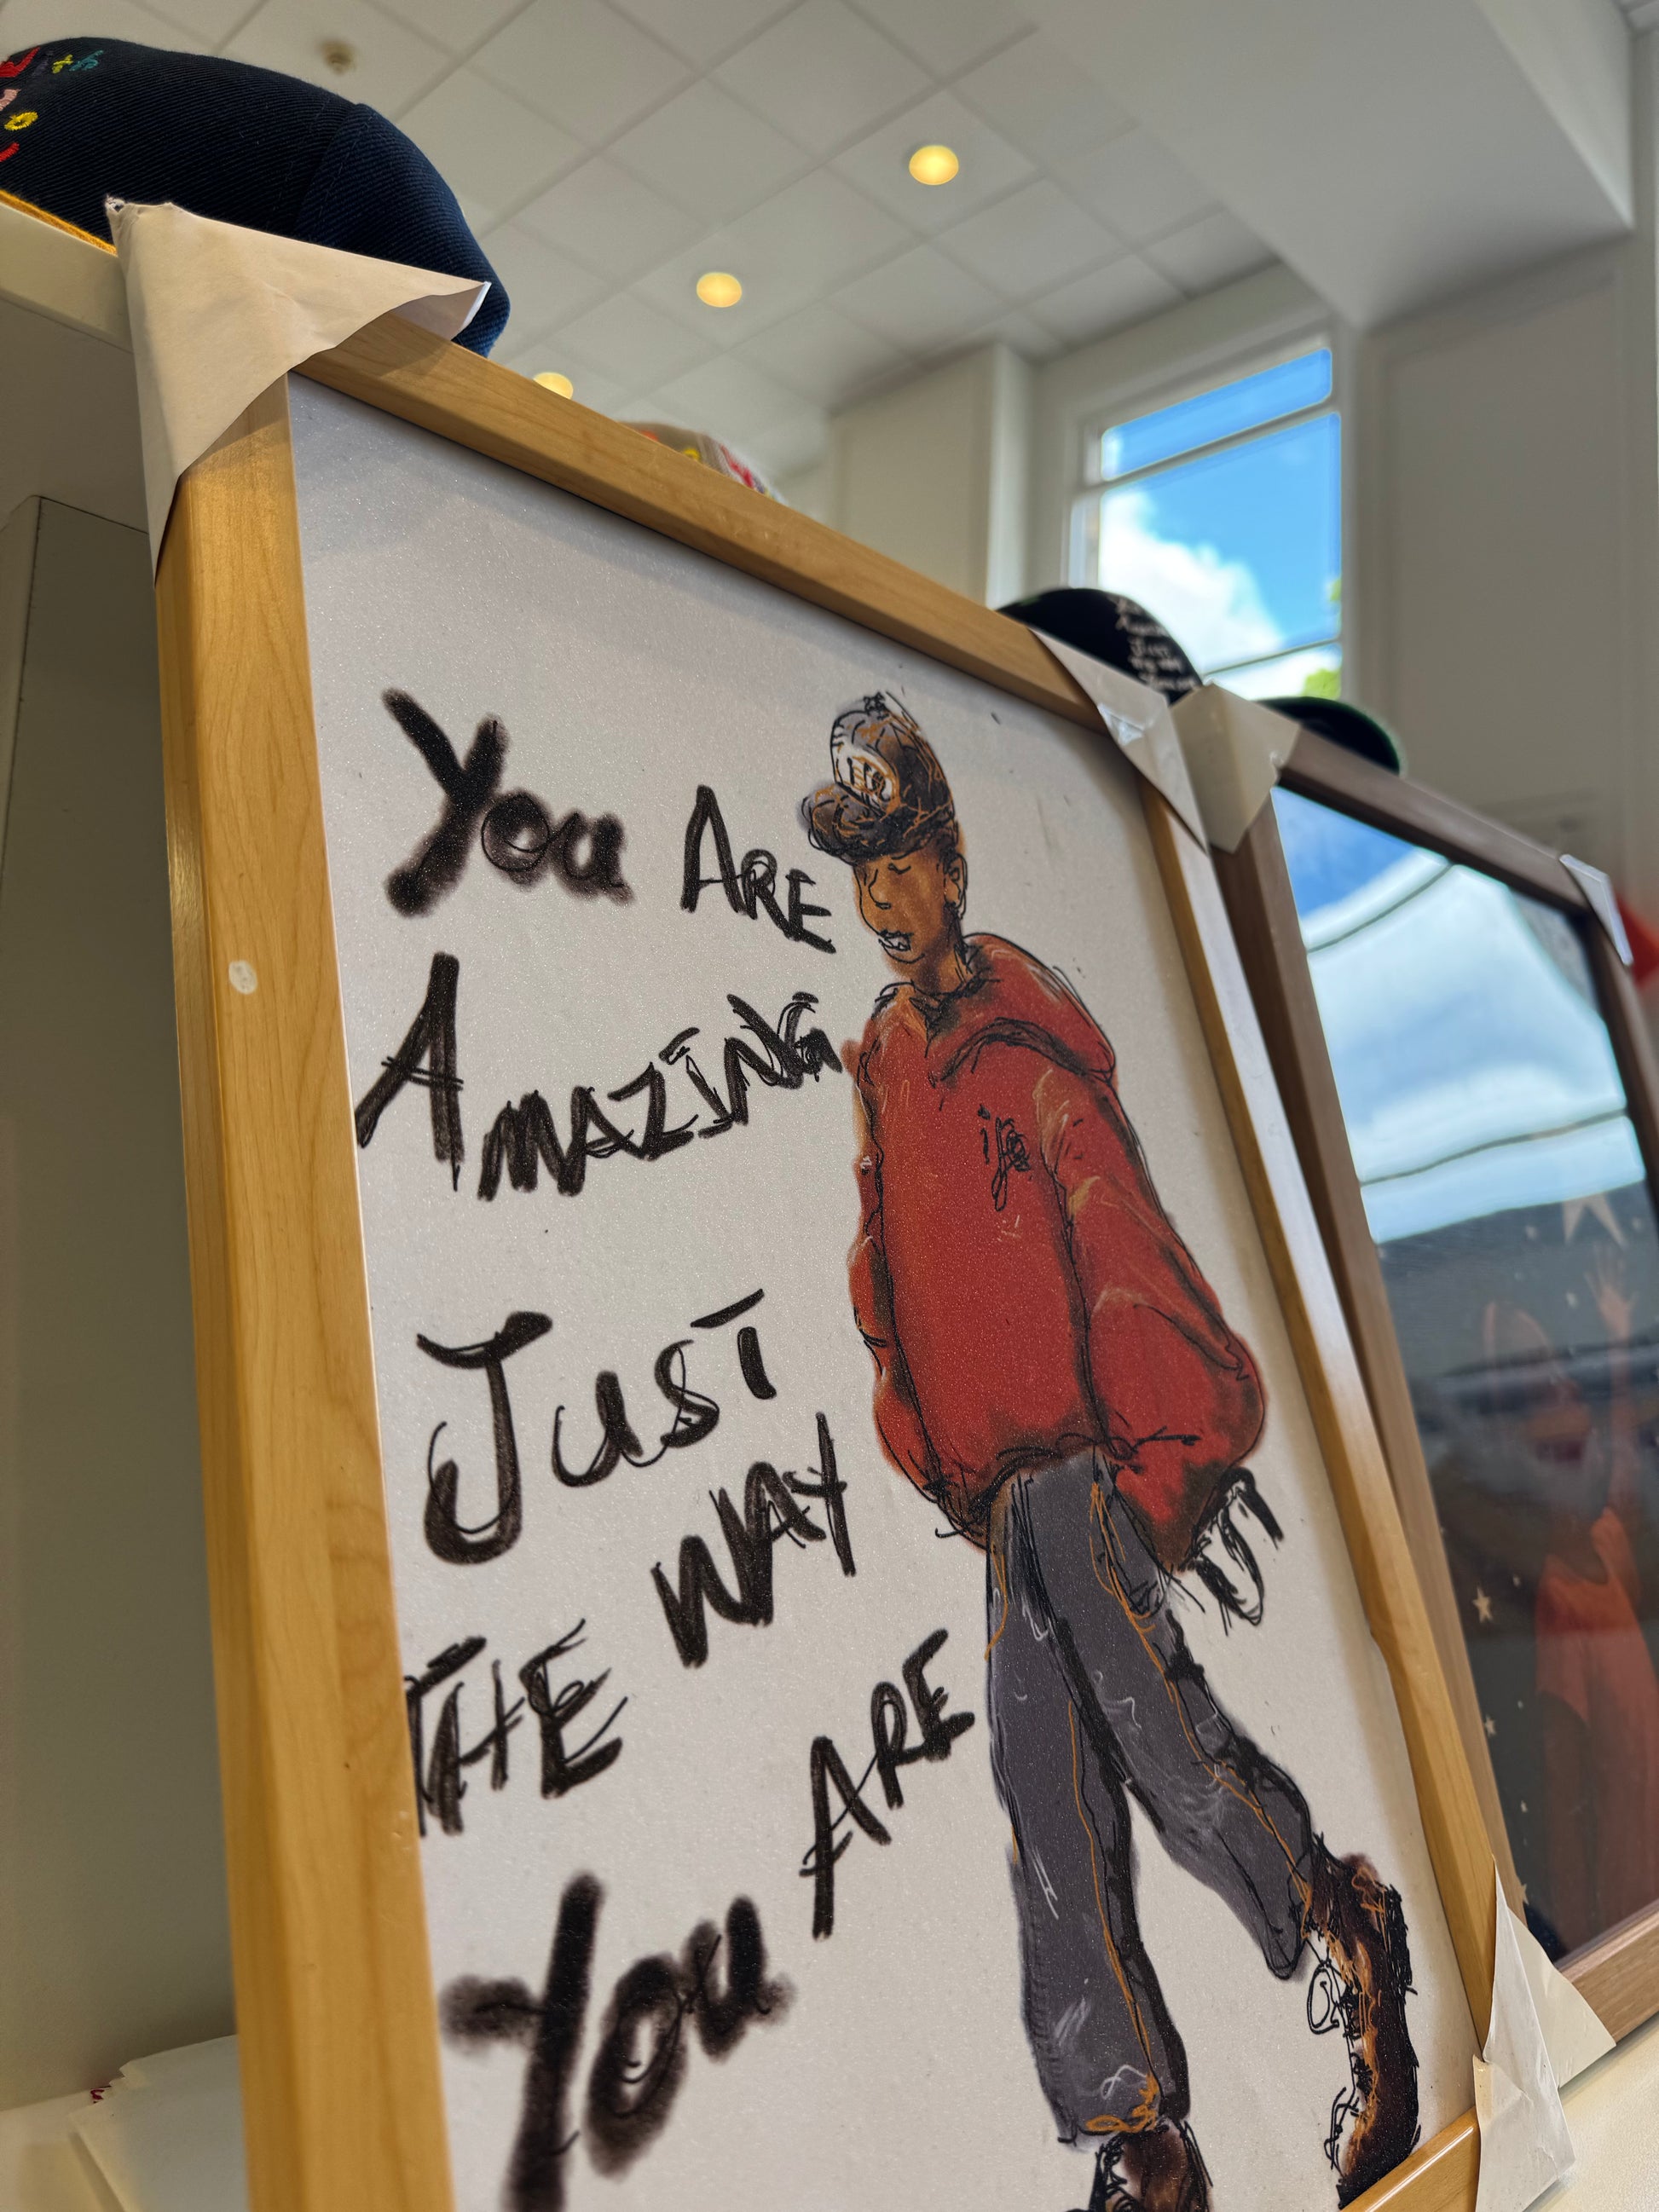 You ARE
AMAZING
JUST
THE WAY
You ARE